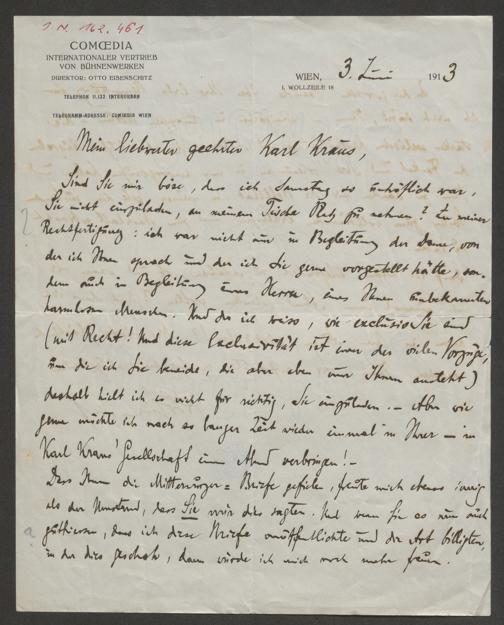 I. N. 162.461
COMŒDIA
INTERNATIONALER VERTRIEB
VON BÜHNENWERKEN
DIREKTOR: OTTO EISENSCHITZ
TELEPHON 11.132 INTERURBAN
TELEGRAMM-ADRESSE: COMOEDIA WIEN
WIEN, 3. Juni 1913
I. WOLLZEILE 18
Mein liebwerter geehrter Karl Kraus,
Sind Sie mir böse, dass ich Samstag so unhöflich war,
Sie nicht einzuladen, an meinem Tische Platz zu nehmen? Zu meiner
Rechtfertigung: ich war nicht nur in Begleitung der Dame, von
der ich Ihnen sprach und der ich Sie gerne vorgestellt hätte, son-
dern auch in Begleitung eines Herrn, eines Ihnen unbekannten
harmlosen Menschen. Und da ich weiss, wie exclusiv Sie sind
(mit Recht! Und diese Exclusivität ist einer der vielen Vorzüge,
um die ich Sie beneide, die aber eben nur Ihnen ansteht)
deshalb hielt ich es nicht für richtig, Sie einzuladen. – Aber wie
gerne möchte ich nach so langer Zeit wieder einmal in Ihrer – in
Karl Kraus' Gesellschaft einen Abend verbringen! –
Dass Ihnen die Mitterwurzer-Briefe gefielen, freute mich ebenso innig
als der Umstand, dass Sie mir dies sagten. Und wenn Sie es nun auch
gutheissen, dass ich diese Briefe veröffentlichte und die Art billigten,
in der dies geschah, dann würde ich mich noch mehr freuen.